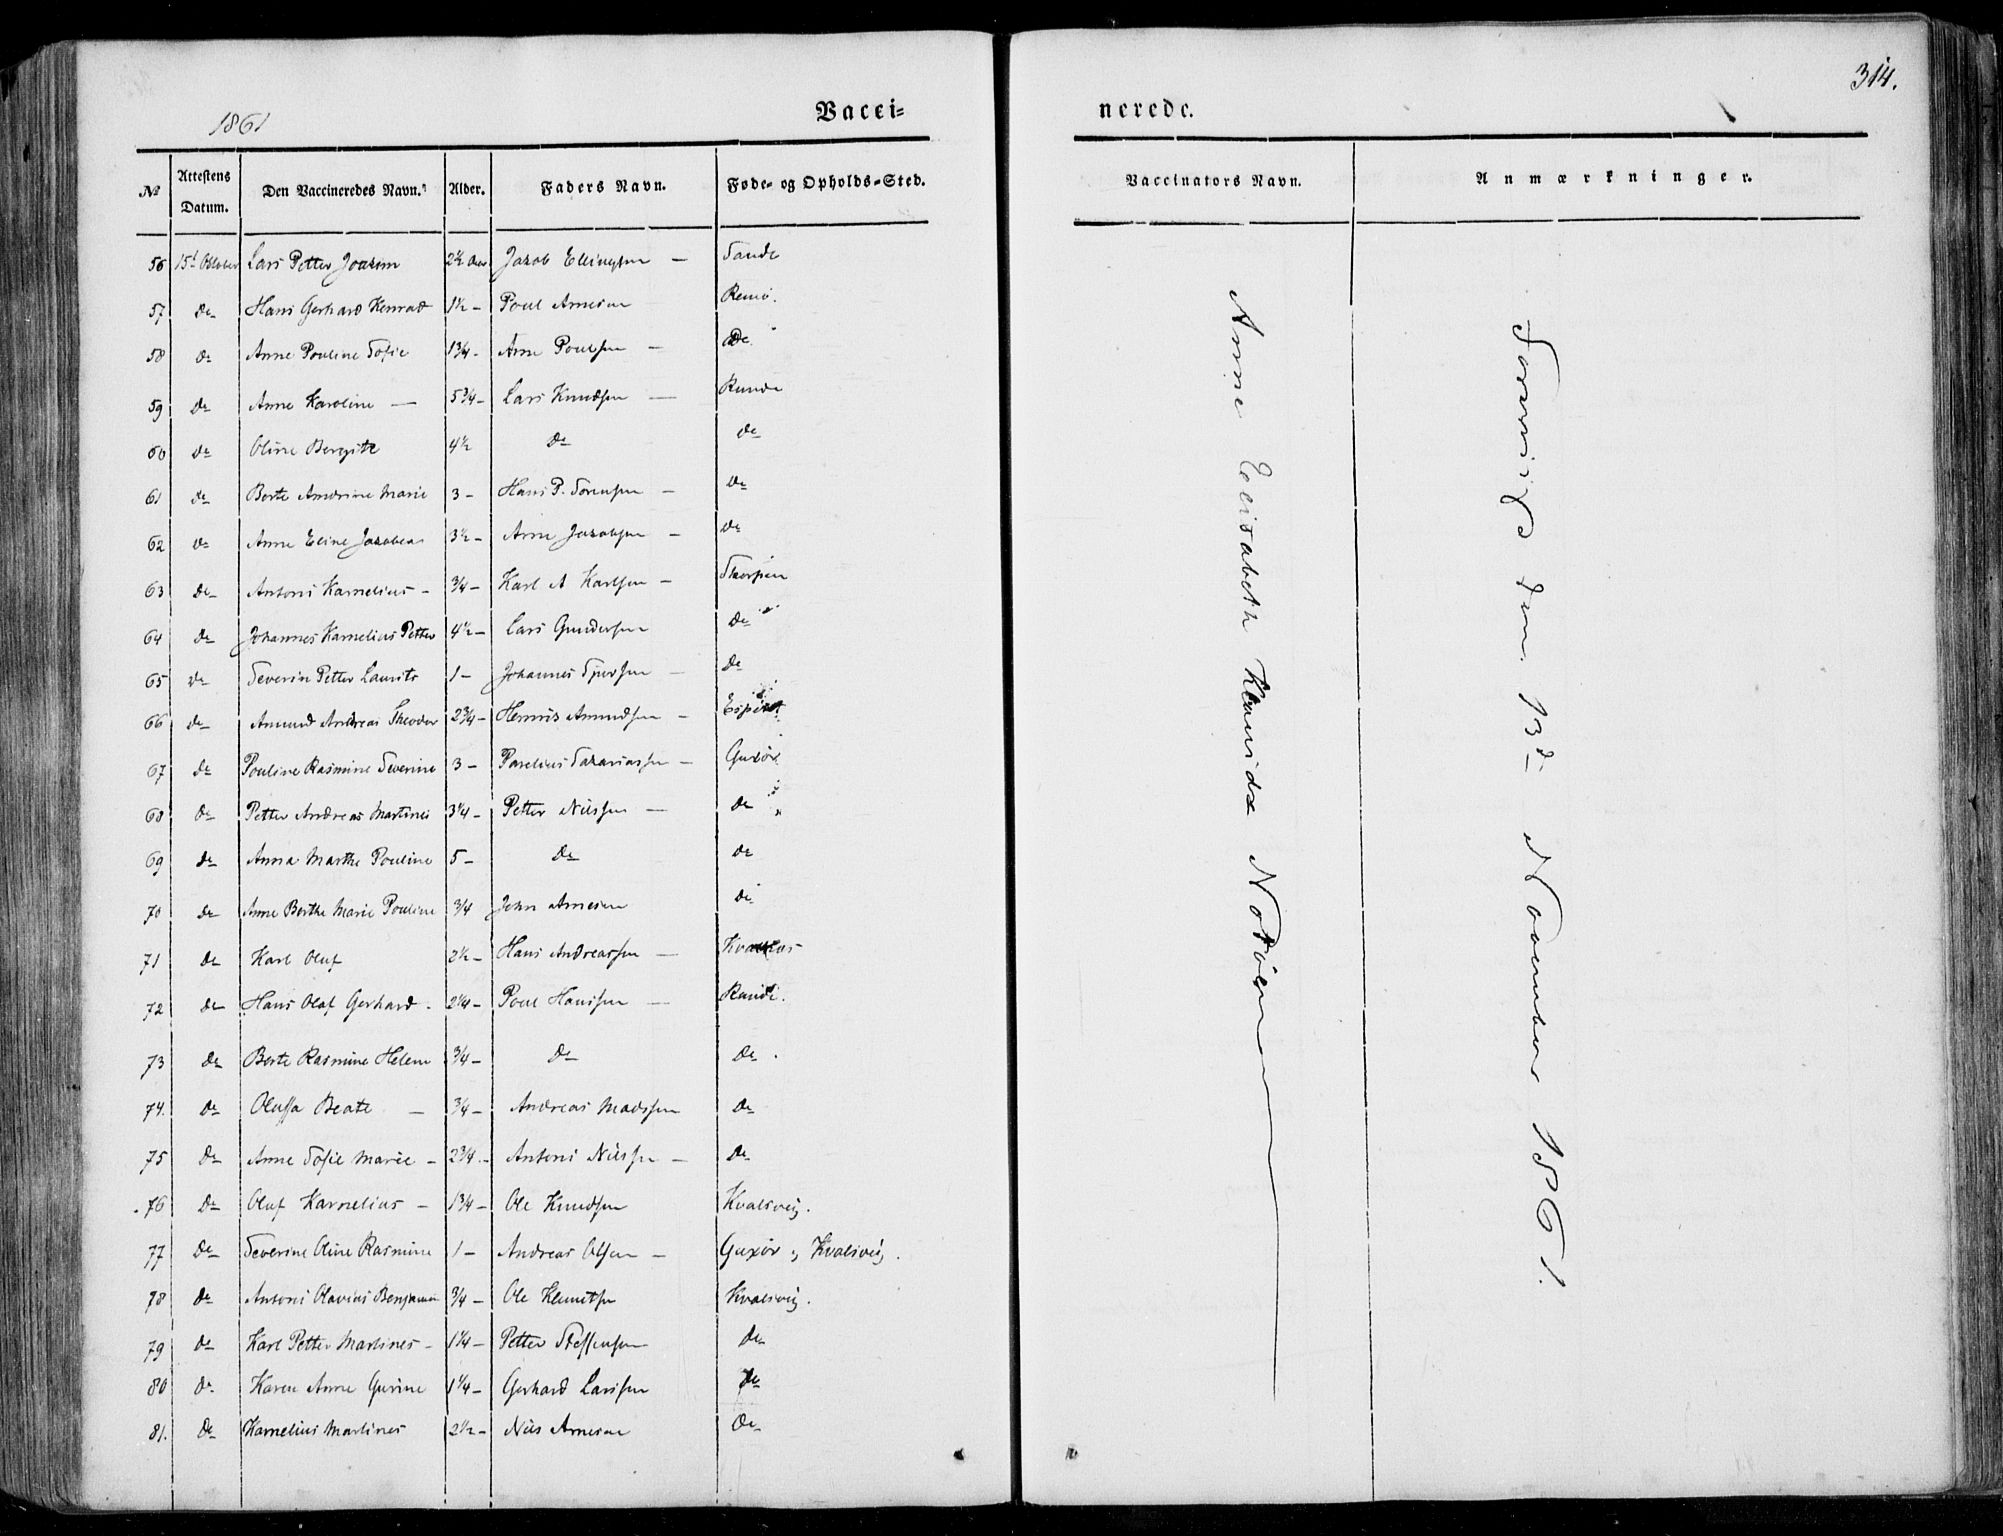 1861
Vacci=
nerede.
314.
№ Attestens Datum. Den Vaccineredes Navn. Alder. Faders Navn. Føde- og Opholds-Sted.
Vaccinators Navn. Anmærkninger.
56 15de Oktober Lars Petter Joakim 2½ Aar Jakob Ellingsen — Sande
57 do Hans Gerhard Konrad 1½ - Poul Arnesen Remø.
58 do Anne Pouline Sofie 1¾ - Arne Poulsen — do
59 do Anne Karoline — 5¾ - Lars Knudsen — Runde
60 do Oline Bergitte 4½ do do
61 do Berte Andrine Marie 3 - Hans P. Sørensen — do
62 do Anne Eline Jakobea 3½ - Arne Jakobsen — do
63 do Antoni Kornelius - ¾ - Karl A Karlsen — Skorpen
64 do Johannes Kornelius Petter 4½ - Lars Gundersen do
65 do Severin Petter Laurits 1 - Johannes Sjursen — do
66 do Amund Andreas Theodor 2¾ - Henrik Amundsen —
67 do Pouline Rasmine Severine 3 - Parelius Sakariassen — Gurør
68 do Petter Andreas Martines 3¼ - Petter Nilssen — do
69 do Anna Marthe Pouline 5 - do do
70 do Anne Berthe Marie Pouline ¾ John Arnesen do
71 do Karl Oluf 2½ - Hans Andreassen —
72 do Hans Olaf Gerhard. 2¼ - Poul Hanssen — Runde.
73 do Berte Rasmine Helene ¾ - do do.
74. do Oluffa Beate — ¾ - Andreas Madssen do
75 do Anne Sofie Marie - 2¾ - Antoni Nilssen — do
76 do Oluf Kornelius - 1¾ - Ole Knudsen Kvalsvig.
77 do Severine Oline Rasmine 1 - Andreas Olsen — Gurør og Kvalsvig.
78 do Antoni Olavius Benjamin ¾ - Ole Kvalsvig.
79 do Karl Petter Martines - 1¼ - Petter Steffensen do
80 do Karen Anne Gurine 1¼ - Gerhard Larssen do
81. do Kornelius Martines 2½ - Nils Arnesen do
Anne Elisabeth Notøen
den 13de November 1861.